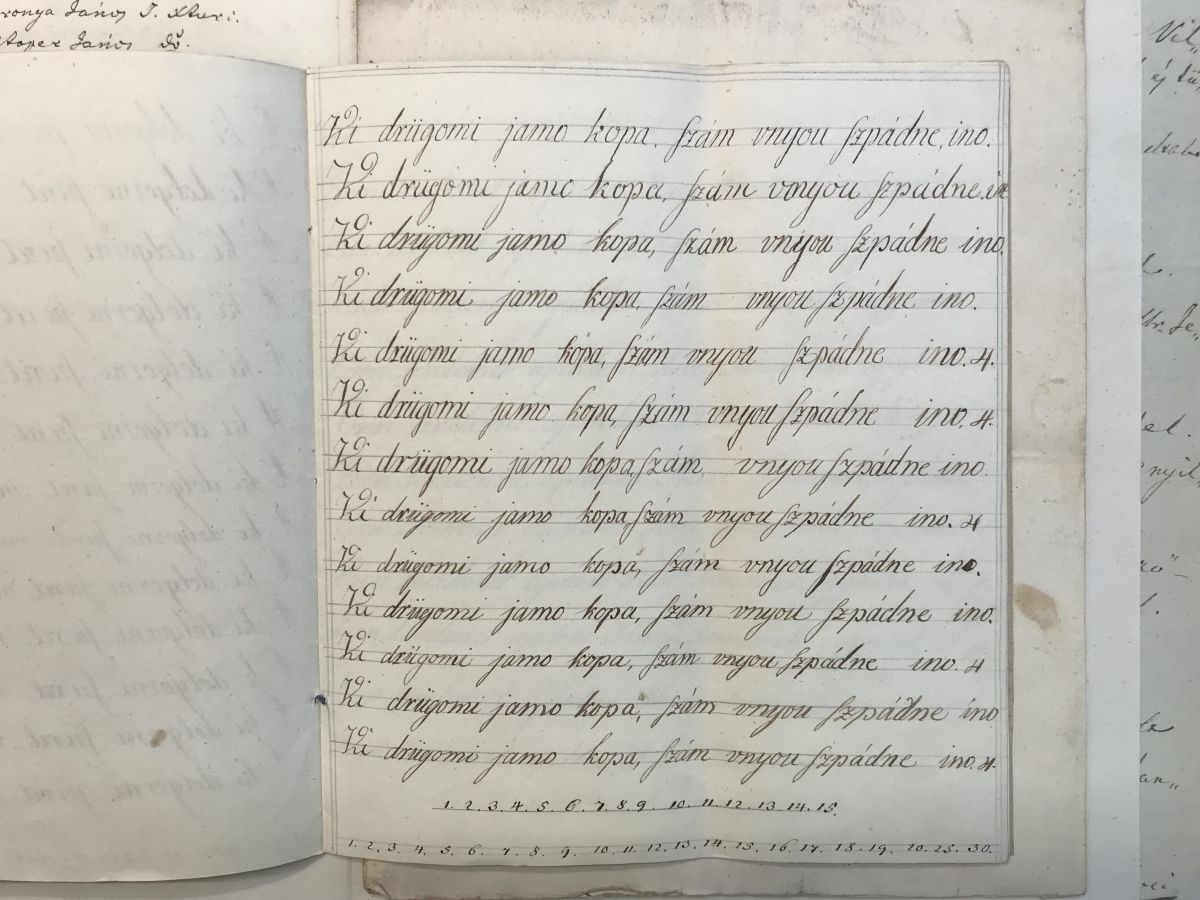 János
János
Ki drügomi jamo kopa. szám vnyou szpádne, ino.
Ki drügomi jamo kopa, szám vnyou szpádne. in
Ki drügomi jamo kopa, szám vnyou szpádne ino.
Ki drügomi jamo kopa, szám vnyou szpádne. ino.
Ki drügomi jamo kopa, szám vnyou szpádne ino. 4.
Ki drügomi jamo kopa, szám vnyou szpádne ino. 4.
Ki drügomi jamo kopa, szám vnyou szpádne ino.
Ki drügomi jamo kopa szám vnyou szpádne ino. 4
Ki drügomi jamo kopa, szám vnyou szpádne ino.
Ki drügomi jamo kopa, szám vnyou szpádne ino.
Ki drügomi jamo kopa, szám vnyou szpádne ino. 4
Ki drügomi jamo kopa, szám vnyou szpádne ino
Ki drügomi jamo kopa, szám vnyou szpádne ino. 4.
1. 2. 3. 4. 5. 6. 7. 8. 9. 10. 11. 12. 13. 14. 15.
1. 2. 3. 4. 5. 6. 7. 8. 9. 10. 11. 12. 13. 14. 15. 16. 17. 18. 19. 20. 25. 30.